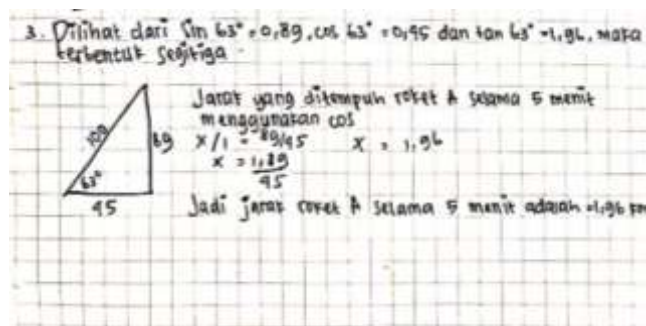 3. Dilihat dari Sin 63° = 0,89, cos 63° = 0,45 dan tan 63° = 1,96, maka
terbentuk segitiga.
100
89
63°
45
Jarak yang ditempuh roket A selama 5 menit
menggunakan cos
x/1 = 89/45 x = 1,96
x = 1,89
45
Jadi jarak roket A selama 5 menit adalah = 1,96 km